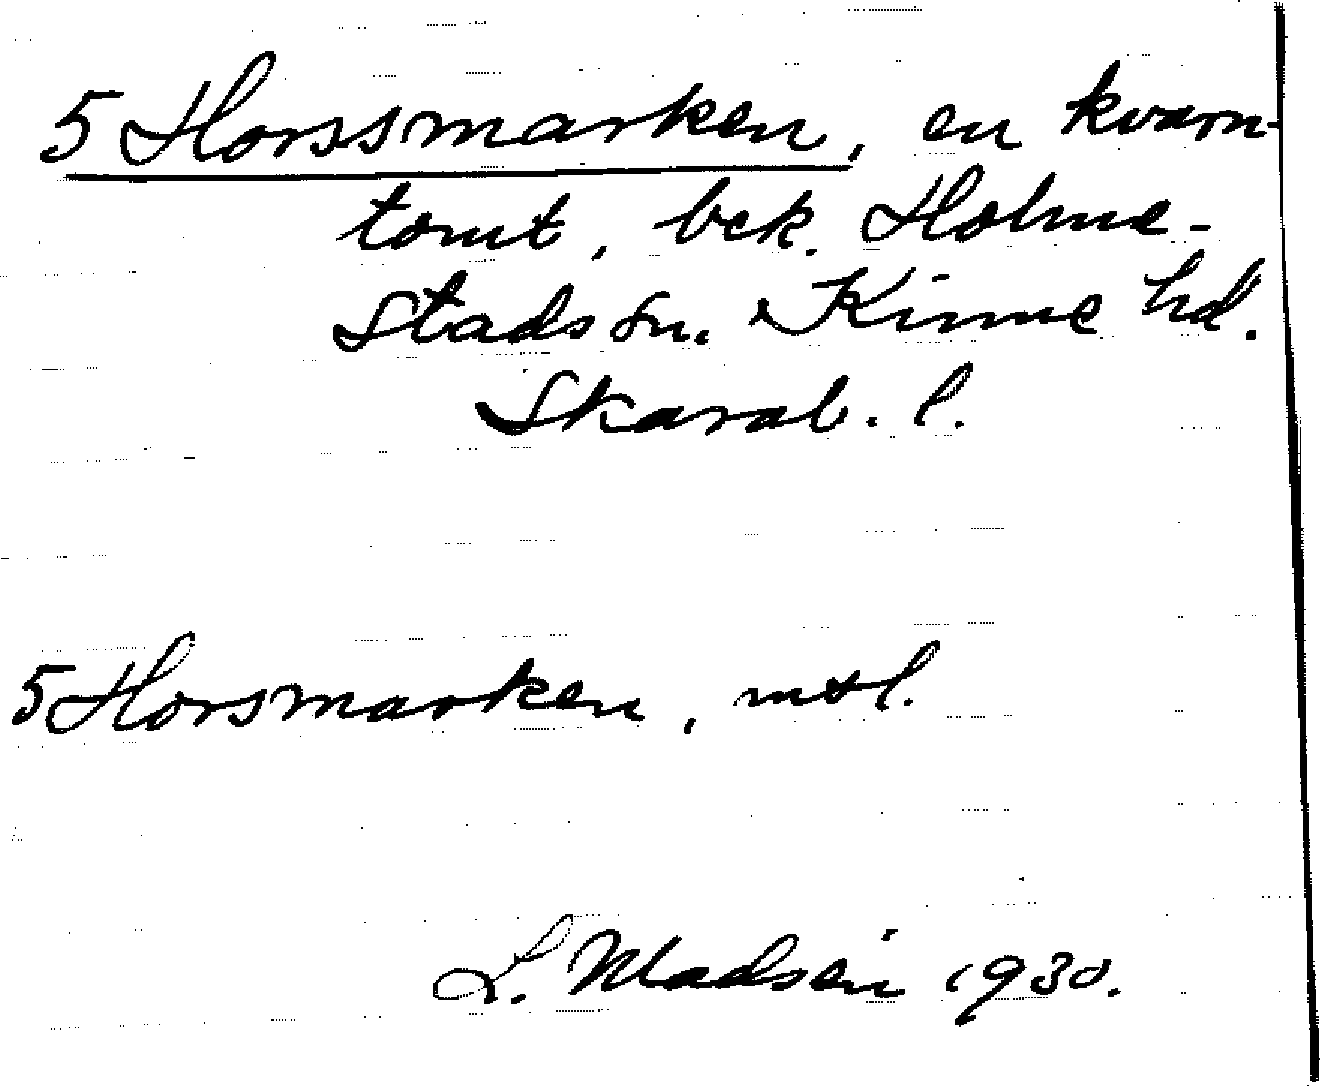 5 Horssmarken, en kvarn-
tomt, bek. Holme-
stads sn. Kinne hd.
Skarab. l.
5 Horsmarken, mtl.
L. Madsén 1930.